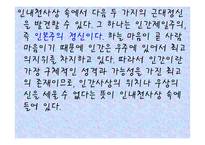 인내천사상 속에서 다음 두 가지의 근대정신
을 발견할 수 있다. 그 하나는 인간제일주의,
즉 인본주의 정신이다. 하늘 마음이 곧 사람
마음이기 때문에 인간은 우주에 있어서 최고
의지위를 차지하고 있다. 따라서 인간이란
가장 구체적인 성격과 가능성을 가진 최고
의 존재이므로, 인간사상의 위치나 우상의
신을 세울 수 없다는 뜻이 인내천사상 속에
들어 있다.